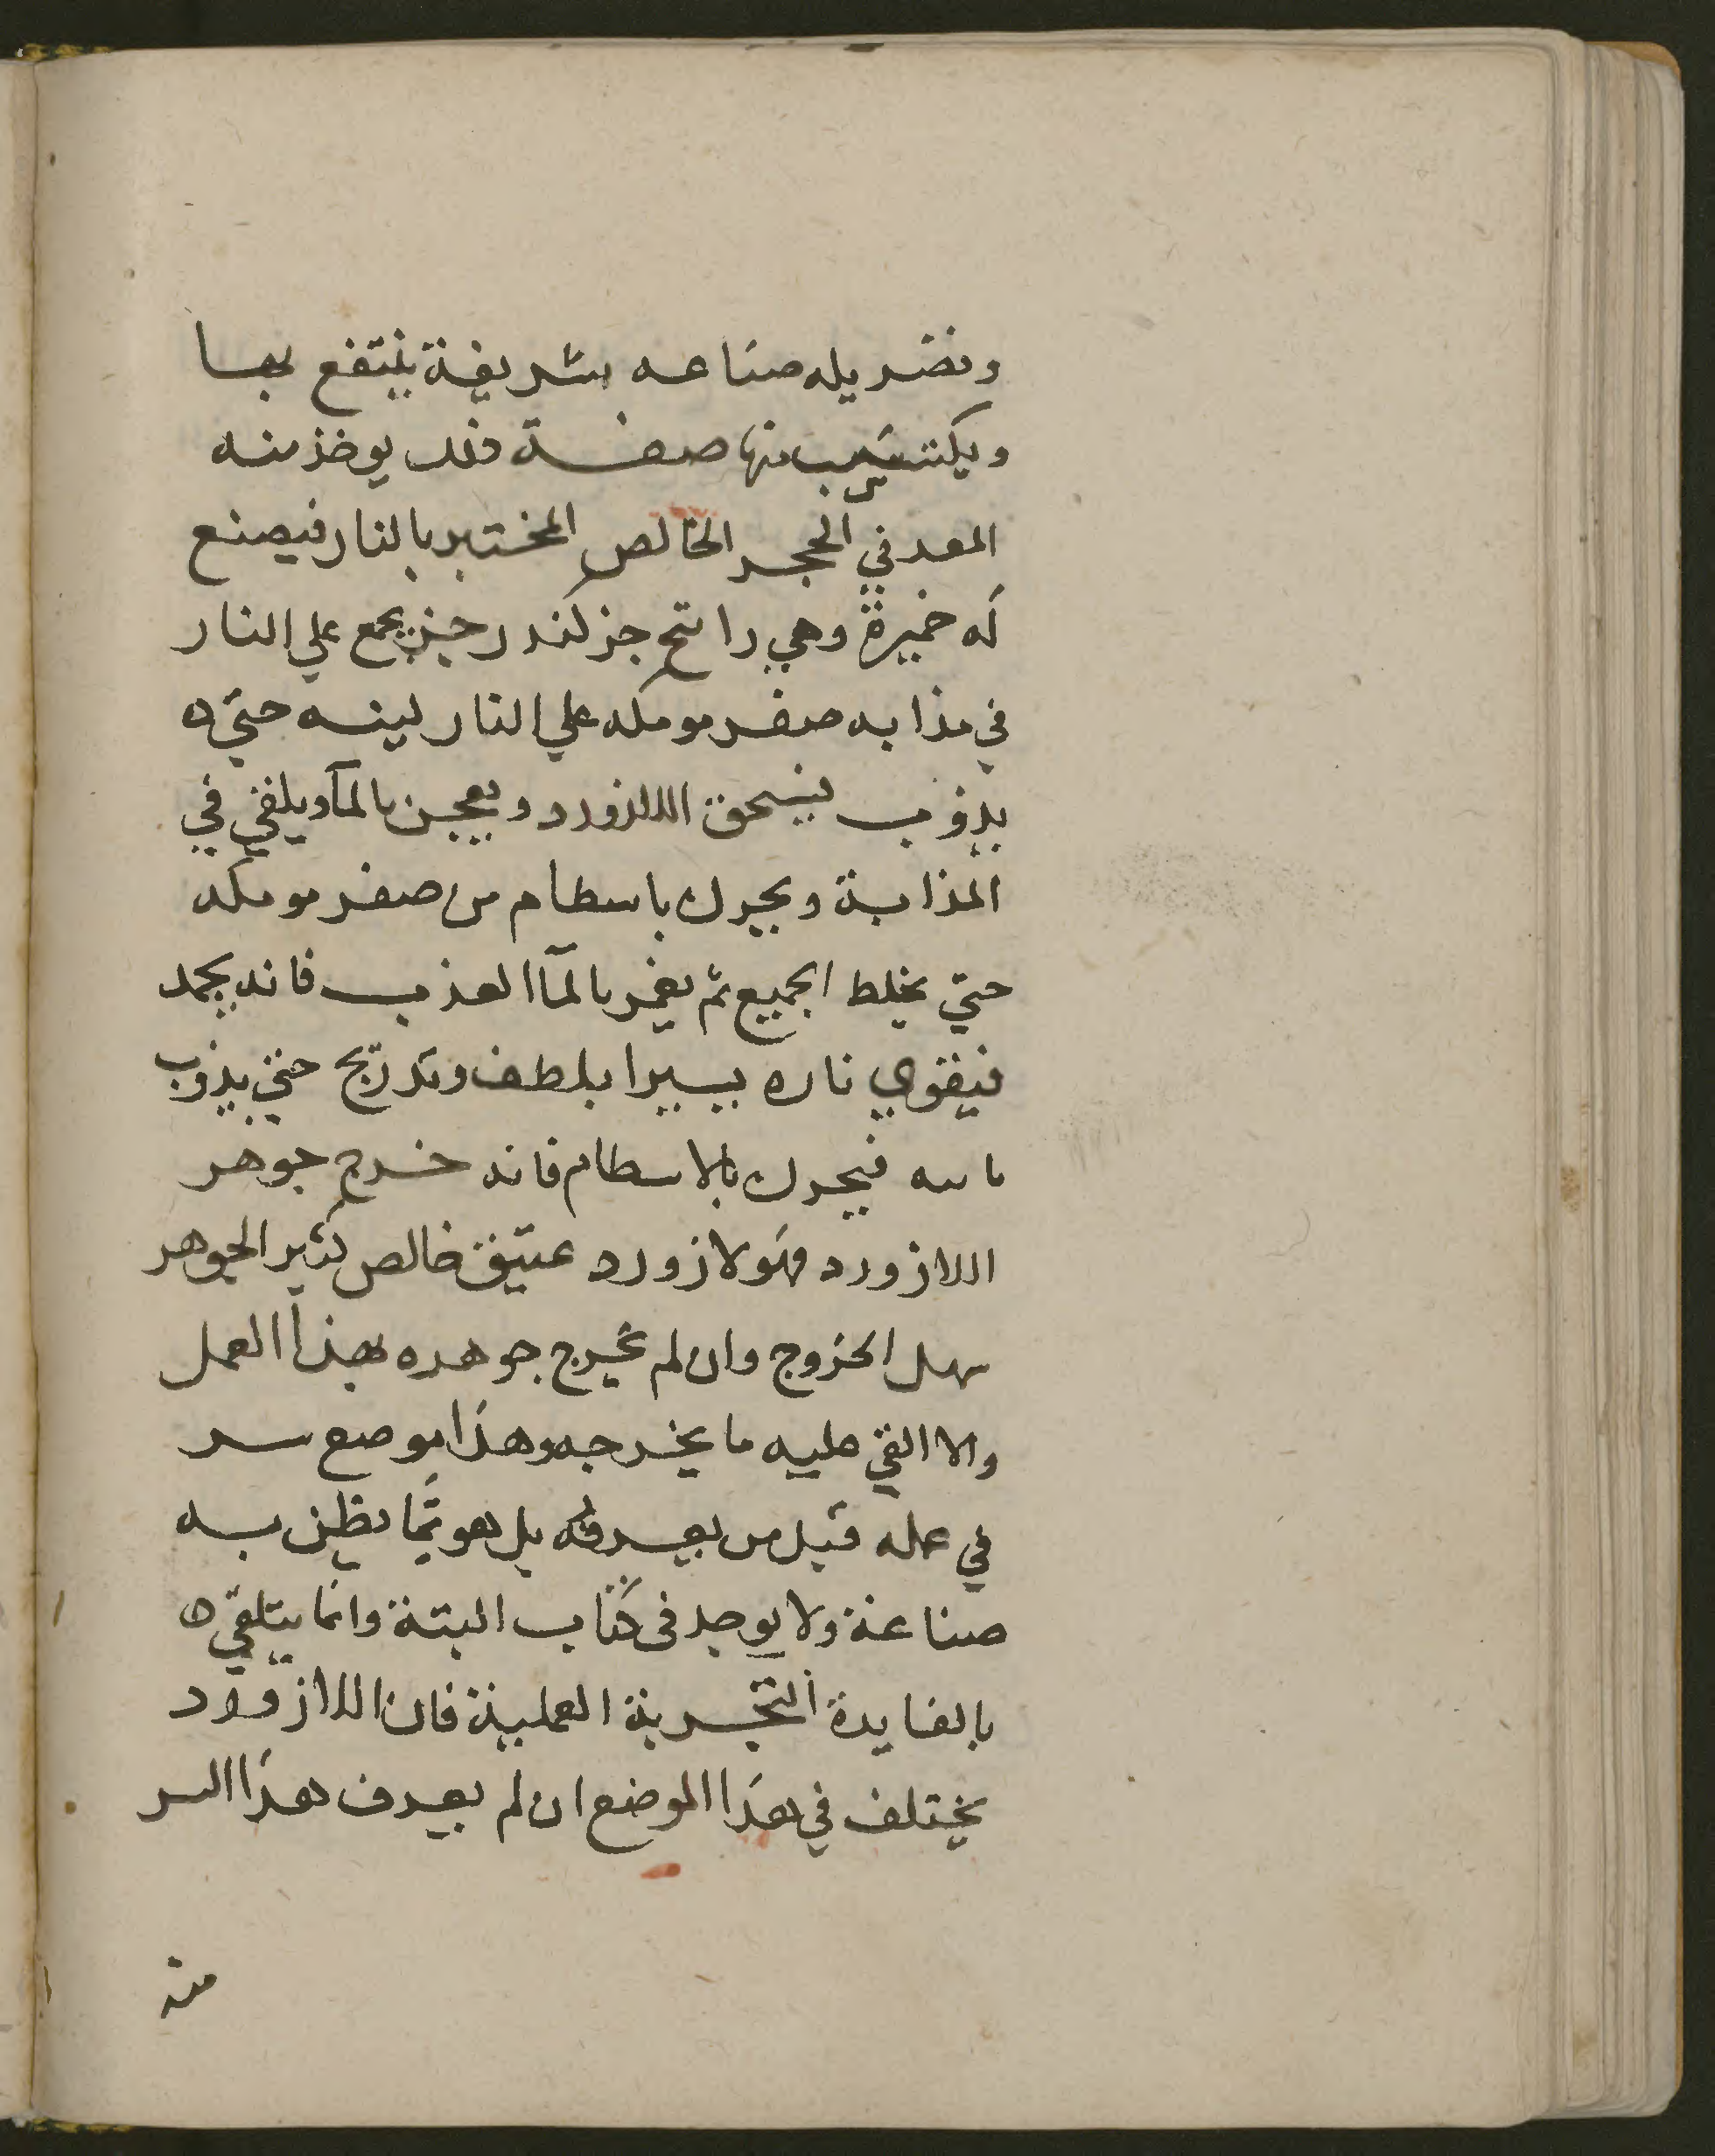 وتصير له صناعه شريفة ينتفع بها
ويكتسب منها صفة ذلك يوخذ منه
المعدني الحجر الخالص المختبر بالنار فيصنع
له خميرة وهي راتنج جز كندر جز يجمع علي النار
في مذابه صفر مومكه علي النار لينه حتي ه
يذوب فيسحق اللازورد ويعجن بالمآ ويلقي في
المذابة ويحرك باسطام من صفر مومكه
حتي يخلط الجميع ثم يغمر بالمآ العذب فانه يجمد
فيقوي ناره يسيرا بلطف وتدريج حتي يذوب
فيحرك بالاسطام فانه خرج جوهر
اللازورد فهو لازورد عتيق خالص كثير الجوهر
سهل الخروج وان لم يخرج جوهره بهذا العمل
والا القي عليه ما يخرجه وهذا موضع سر
في عمله قبل من يعرفه بل هو مما يظن به
صناعة ولا يوجد فى كتاب البتة وانما يتلقي ه
بالفايدة التجربة العملية فان اللازورد
يختلف في هذا الموضع ان لم يعرف هذا السر
منه